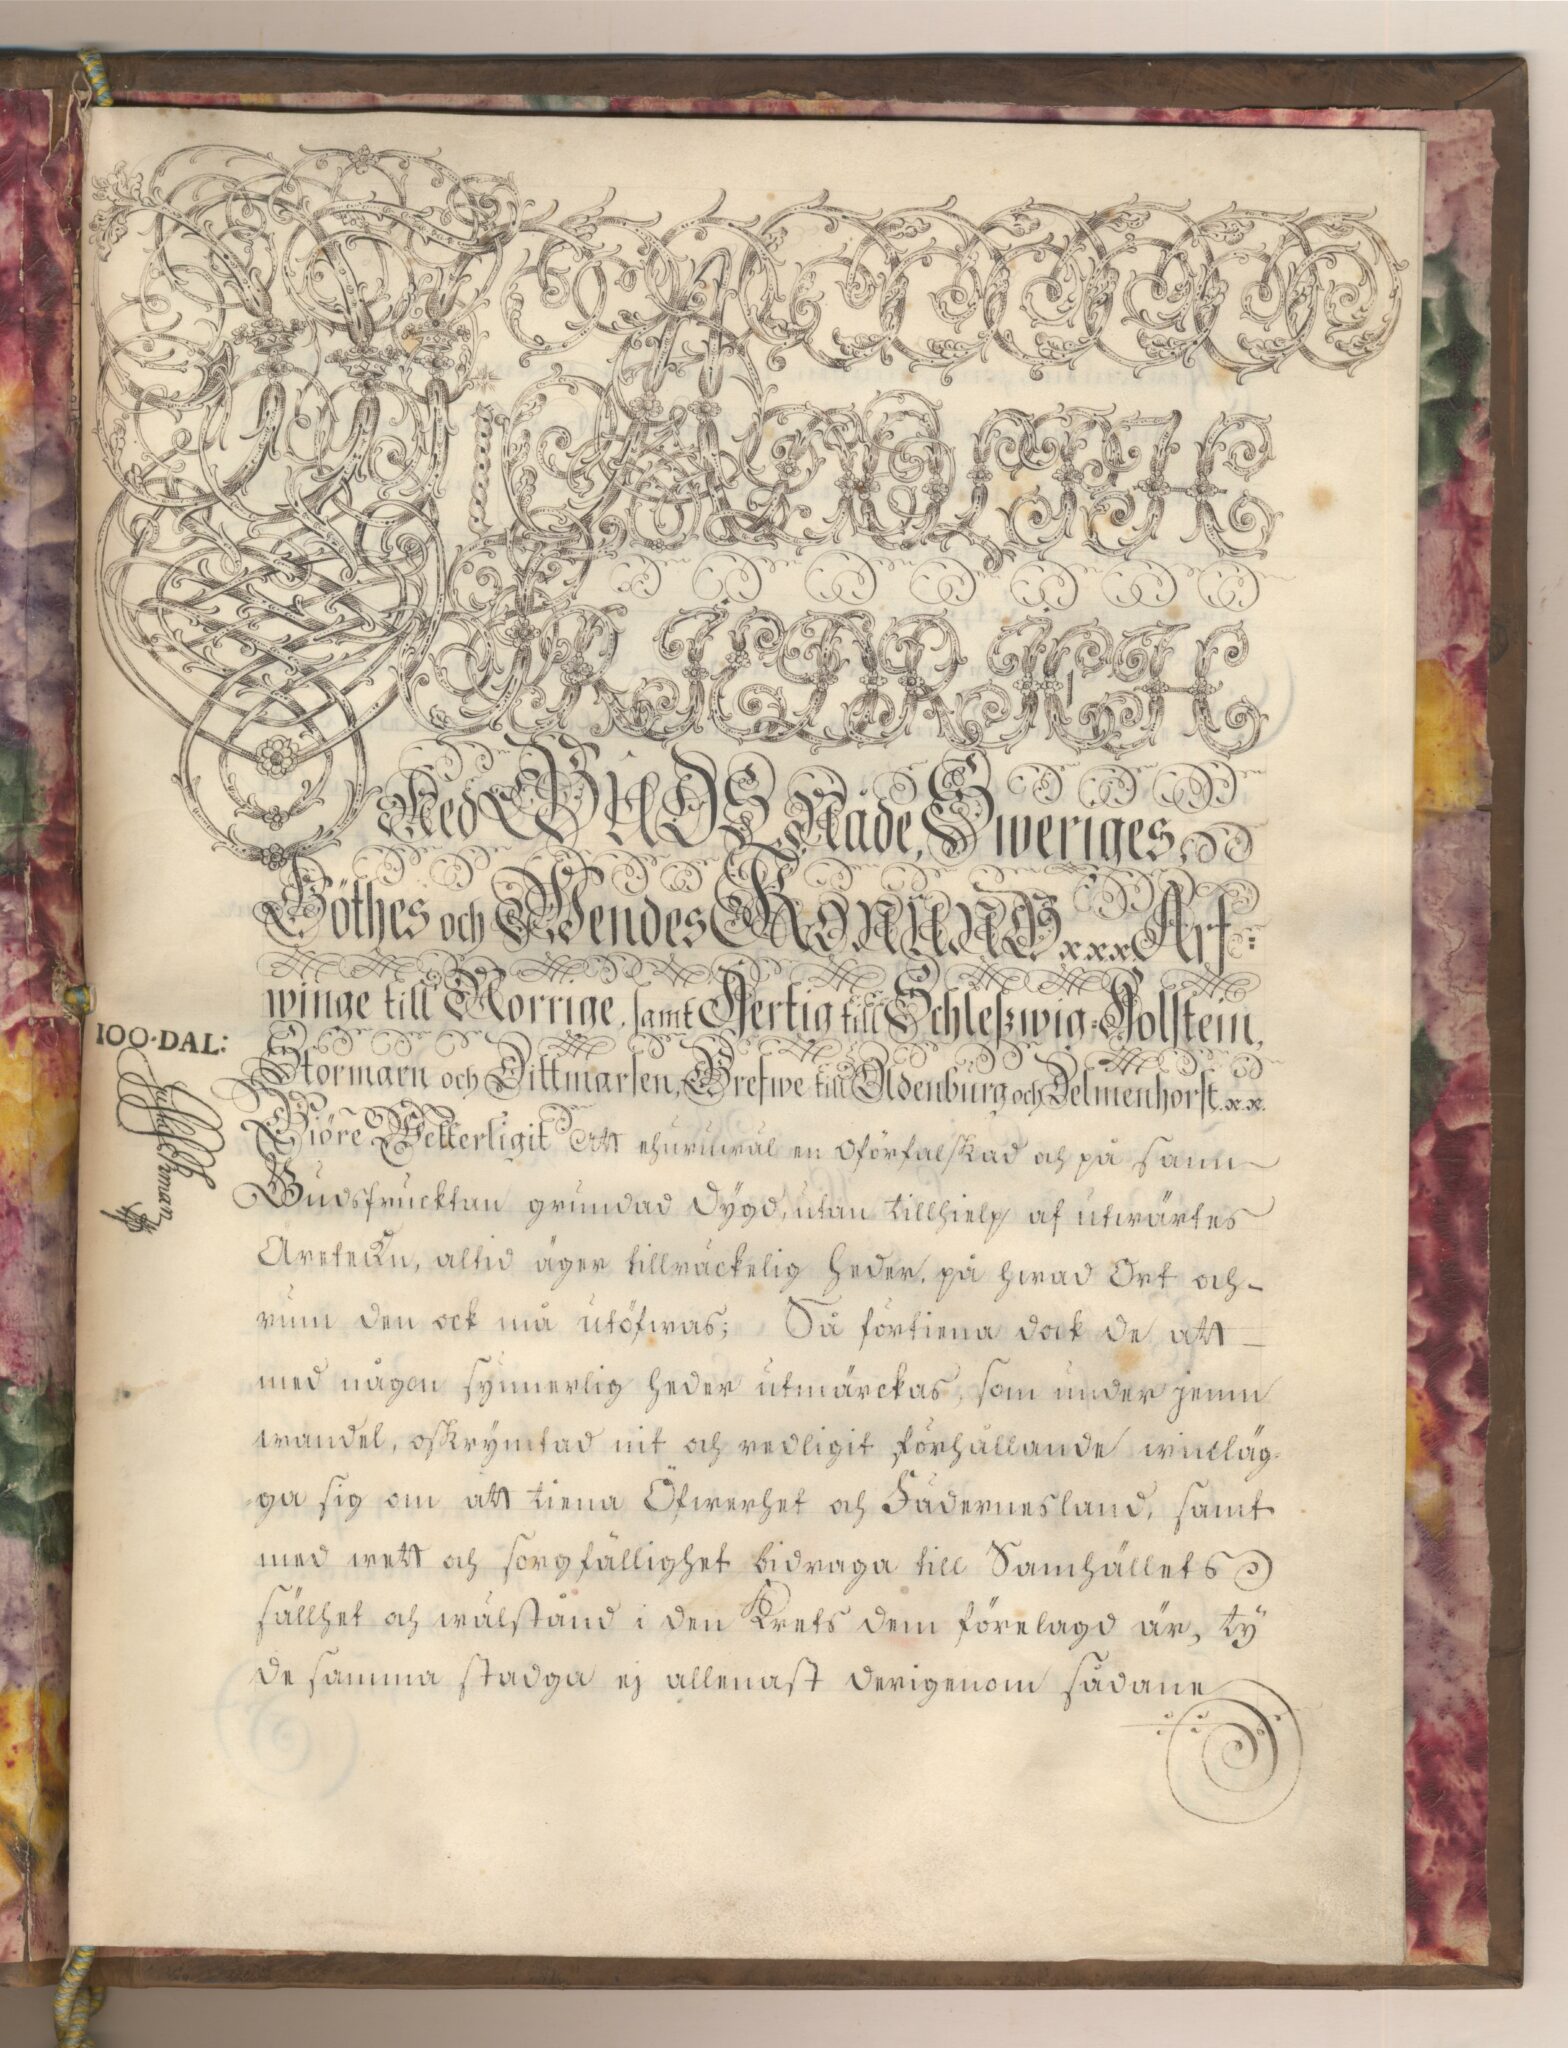 WII
ADOLPH
FRIEDRICH
Med GUDS Nåde, Sweriges,
Göthes och Wendes KONUNG xxx Arf-
winge till Norrige, samt Hertig till Schleßwig-Holstein,
Stormarn och Dittmarsen, Grefwe till Oldenburg och Delmenhorst. x. x.
Giöre Wetterligit att ehuruwäl en oförfalskad och på sann
Gudsfrucktan grundad dÿgd, utan tillhielp af utwärtes
Äretekn, altid äger tillräckelig heder, på hwad Ort och
rum den ock må utöfwas; Så förtiena dock de att
med någon synnerlig heder utmärckas, som under jemn
wandel, oskrÿmtad nit och redligit förhållande winläg-
ga sig om att tiena Öfwerhet och Fäderneslandd, samt
med wett och sorgfällighet bidraga till Samhällets
sällhet och wälstånd i den Krets dem förelagd är, tÿ
de samma stadga ej allenast derigenom sådane
100·DAL: